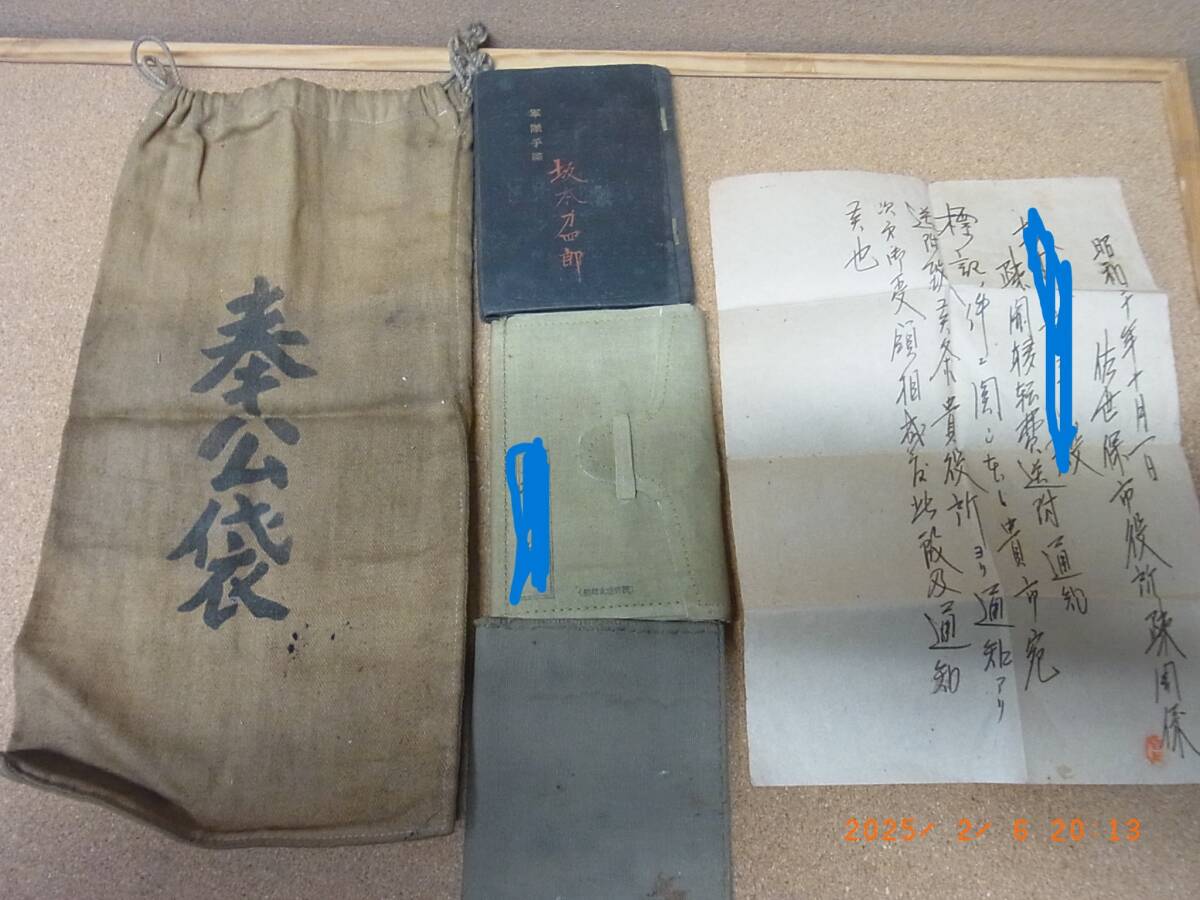 奉公袋
軍隊手牒
坂本力四郎
昭和 年十月一日
佐世保市役所疎開係
殿
疎開移転費送附通知
標記ノ件ニ関シ 貴市宛
送附致候条貴役所ヨリ通知アリ
次第御受領相成度此段及通知
候也
2025/ 2/ 6 20:13